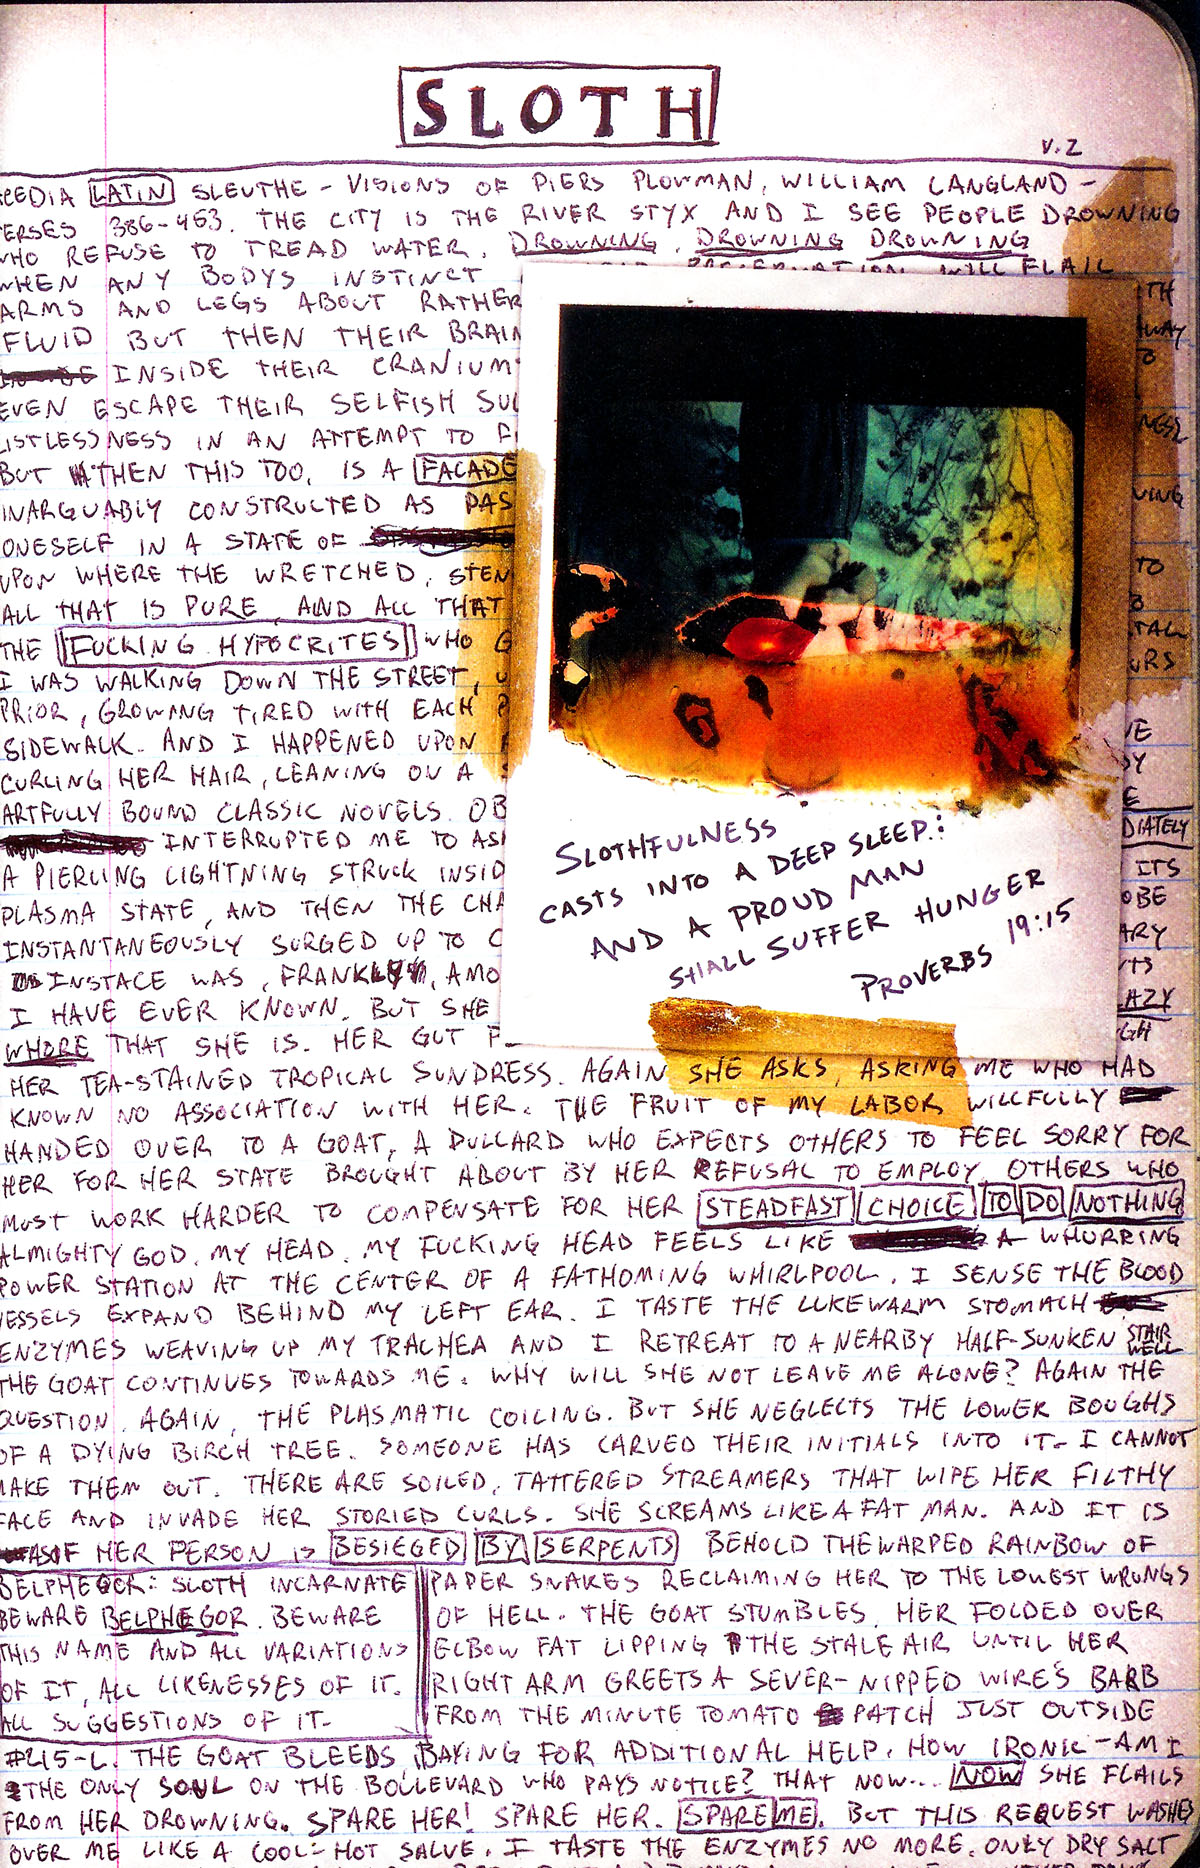 SLOTH
V.2
CEDIA LATIN SLEUTHE - VISIONS OF PIERS PLOWMAN, WILLIAM LANGLAND -
ERSES 386-453. THE CITY IS THE RIVER STYX AND I SEE PEOPLE DROWNING
WHO REFUSE TO TREAD WATER. DROWNING. DROWNING DROWNING
WHEN ANY BODYS INSTINCT PRESERVATION WILL FLAIL
ARMS AND LEGS ABOUT RATHER ITH
FLUID BUT THEN THEIR BRAIN WAY
INSIDE THEIR CRANIUM TO
EVEN ESCAPE THEIR SELFISH SUL
LISTLESSNESS IN AN ATTEMPT TO FI NGS
BUT THEN THIS TOO, IS A FACADE
INARGUABLY CONSTRUCTED AS PAS VING
ONESELF IN A STATE OF
UPON WHERE THE WRETCHED, STEN TO
ALL THAT IS PURE AND ALL THAT
THE FUCKING HYPOCRITES WHO G TALL
I WAS WALKING DOWN THE STREET, U URS
PRIOR, GROWING TIRED WITH EACH P
SIDEWALK. AND I HAPPENED UPON VE
CURLING HER HAIR, LEANING ON A DY
ARTFULLY BOUND CLASSIC NOVELS. OB E
INTERRUPTED ME TO AS DIATELY
A PIERCING LIGHTNING STRUCK INSID ITS
PLASMA STATE, AND THEN THE CHA OBE
INSTANTANEOUSLY SURGED UP TO C ARY
INSTACE WAS, FRANKLY, AMO YTS
I HAVE EVER KNOWN. BUT SHE LAZY
WHORE THAT SHE IS. HER GUT F GH
SLOTHFULNESS
CASTS INTO A DEEP SLEEP:
AND A PROUD MAN
SHALL SUFFER HUNGER
PROVERBS 19:15
HER TEA-STAINED TROPICAL SUNDRESS. AGAIN SHE ASKS, ASKING ME WHO HAD
KNOWN NO ASSOCIATION WITH HER. THE FRUIT OF MY LABOR WILLFULLY
HANDED OVER TO A GOAT, A DULLARD WHO EXPECTS OTHERS TO FEEL SORRY FOR
HER FOR HER STATE BROUGHT ABOUT BY HER REFUSAL TO EMPLOY, OTHERS WHO
MUST WORK HARDER TO COMPENSATE FOR HER STEADFAST CHOICE TO DO NOTHING
ALMIGHTY GOD. MY HEAD. MY FUCKING HEAD FEELS LIKE A WHURRING
POWER STATION AT THE CENTER OF A FATHOMING WHIRLPOOL. I SENSE THE BLOOD
VESSELS EXPAND BEHIND MY LEFT EAR. I TASTE THE LUKEWARM STOMACH
ENZYMES WEAVING UP MY TRACHEA AND I RETREAT TO A NEARBY HALF-SUNKEN STAIR WELL
THE GOAT CONTINUES TOWARDS ME. WHY WILL SHE NOT LEAVE ME ALONE? AGAIN THE
QUESTION. AGAIN, THE PLASMATIC COILING. BUT SHE NEGLECTS THE LOWER BOUGHS
OF A DYING BIRCH TREE. SOMEONE HAS CARVED THEIR INITIALS INTO IT- I CANNOT
MAKE THEM OUT. THERE ARE SOILED, TATTERED STREAMERS THAT WIPE HER FILTHY
FACE AND INVADE HER STORIED CURLS. SHE SCREAMS LIKE A FAT MAN. AND IT IS
AS IF HER PERSON IS BESIEGED BY SERPENTS BEHOLD THE WARPED RAINBOW OF
BELPHEGOR: SLOTH INCARNATE
BEWARE BELPHEGOR. BEWARE
THIS NAME AND ALL VARIATIONS
OF IT, ALL LIKENESSES OF IT.
ALL SUGGESTIONS OF IT-
PAPER SNAKES RECLAIMING HER TO THE LOWEST WRUNGS
OF HELL. THE GOAT STUMBLES. HER FOLDED OVER
ELBOW FAT LIPPING THE STALE AIR UNTIL HER
RIGHT ARM GREETS A SEVER-NIPPED WIRE'S BARB
FROM THE MINUTE TOMATO PATCH JUST OUTSIDE
#215-L. THE GOAT BLEEDS, BAYING FOR ADDITIONAL HELP. HOW IRONIC - AM I
THE ONLY SOUL ON THE BOULEVARD WHO PAYS NOTICE? THAT NOW... NOW SHE FLAILS
FROM HER DROWNING. SPARE HER! SPARE HER. SPARE ME. BUT THIS REQUEST WASHES
OVER ME LIKE A COOL-HOT SALVE. I TASTE THE ENZYMES NO MORE. ONLY DRY SALT